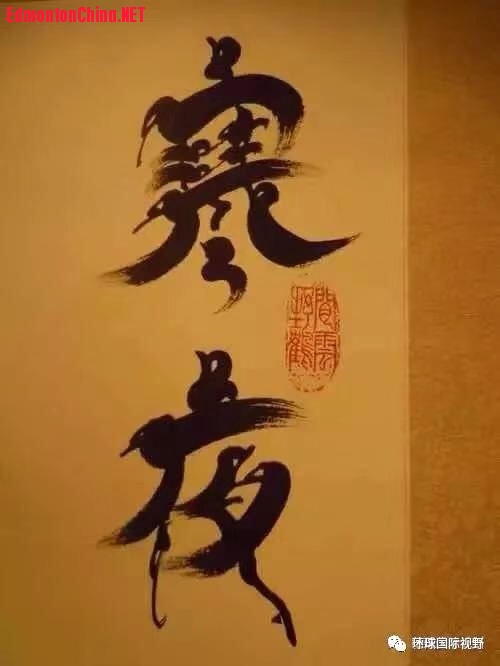 EdmontonChina.NET
寒
夜
閒雲
野鶴
环球国际视野